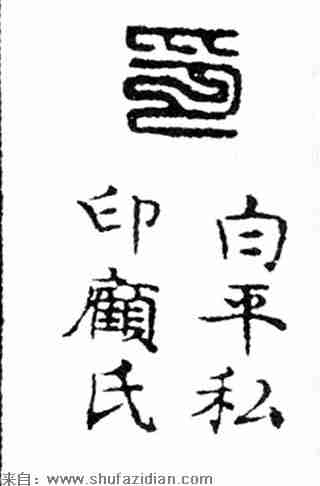 印
白平私
印顧氏
来自：www.shufazidian.com